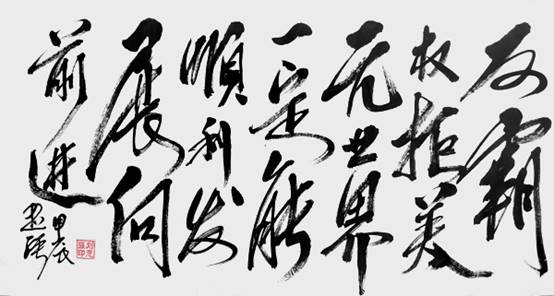 反霸
权拒美
元世界
一定能
順利发
展向
前进
甲辰